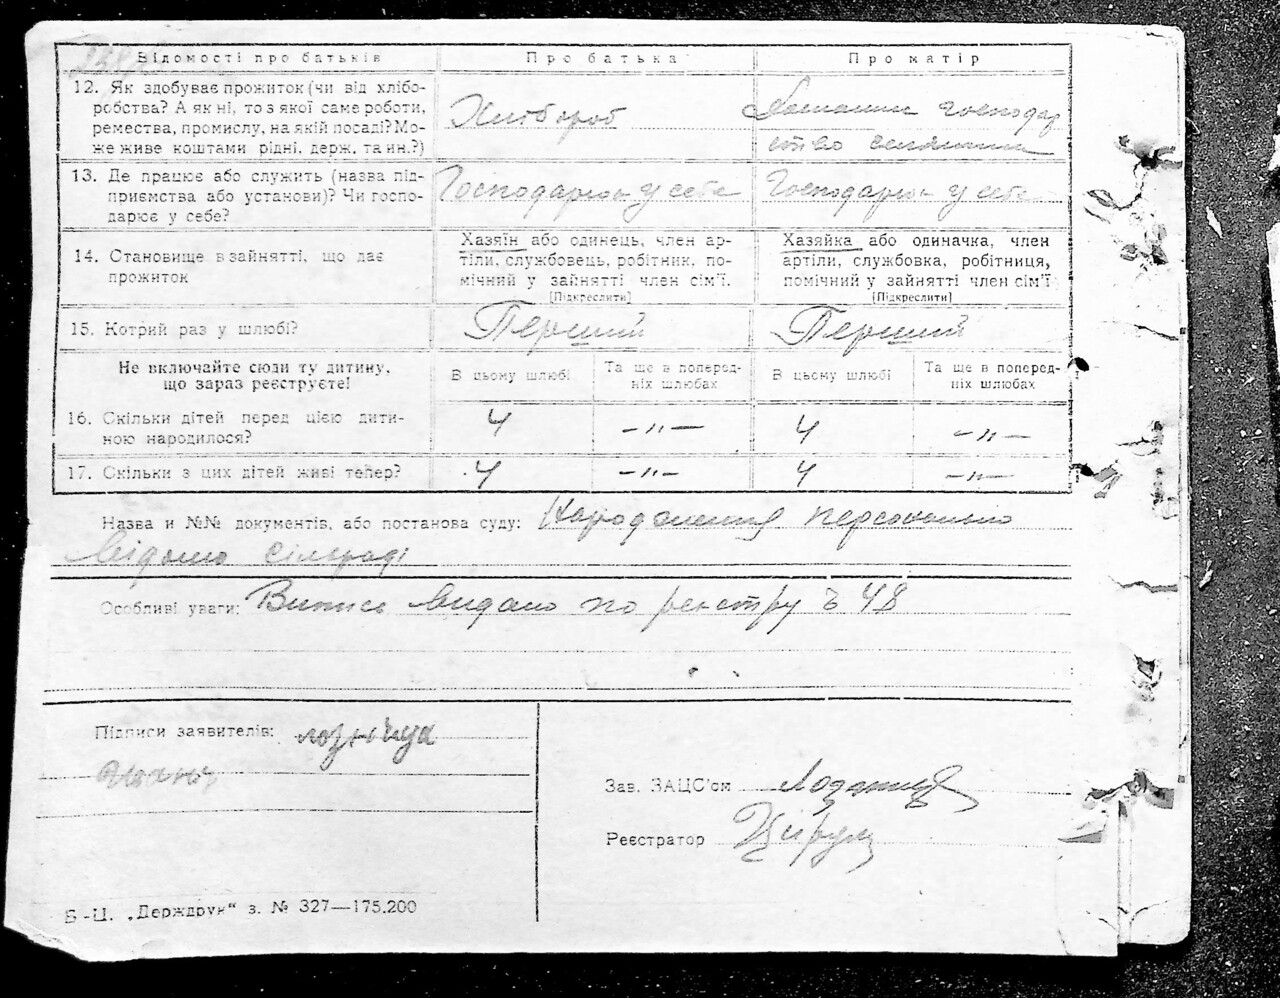 Відомості про батьків
Про батька
Про матір
12. Як здобуває прожиток (чи від хлібо-
робства? А як ні, то з якої саме роботи,
ремества, промислу, на якій посаді? Мо-
же живе коштами рідні, держ. та ин.?)
Хлібороб
Домашнє господар
ство
13. Де працює або служить (назва під-
приємства або установи)? Чи госпо-
дарює у себе?
Господарює у себе
Господарює у себе
14. Становище в зайнятті, що дає
прожиток
Хазяїн або одинець, член ар-
тіли, службовець, робітник, по-
мічний у зайнятті член сім'ї.
[Підкреслити]
Хазяйка або одиначка, член
артіли, службовка, робітниця,
помічний у зайнятті член сім'ї
[Підкреслити]
15. Котрий раз у шлюбі?
Перший
Перший
Не включайте сюди ту дитину,
що зараз реєструєте!
В цьому шлюбі
Та ще в поперед-
ніх шлюбах
В цьому шлюбі
Та ще в поперед-
ніх шлюбах
16. Скільки дітей перед цією дити-
ною народилося?
4
—"—
4
—"—
17. Скільки з цих дітей живі тепер?
4
—"—
4
—"—
Назва и №№ документів, або постанова суду: Народження персонально
відомо сільраді
Особливі уваги: Випис видано по реєстру Ч 48
Підписи заявителів:
Зав. ЗАЦС'ом
Реєстратор
Б-Ц. „Держдрук“ з. № 327—175.200